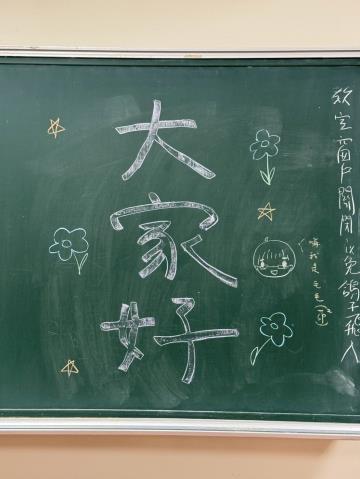 大家好
教室窗戶關閉以免鴿子飛入
嗨我是毛毛